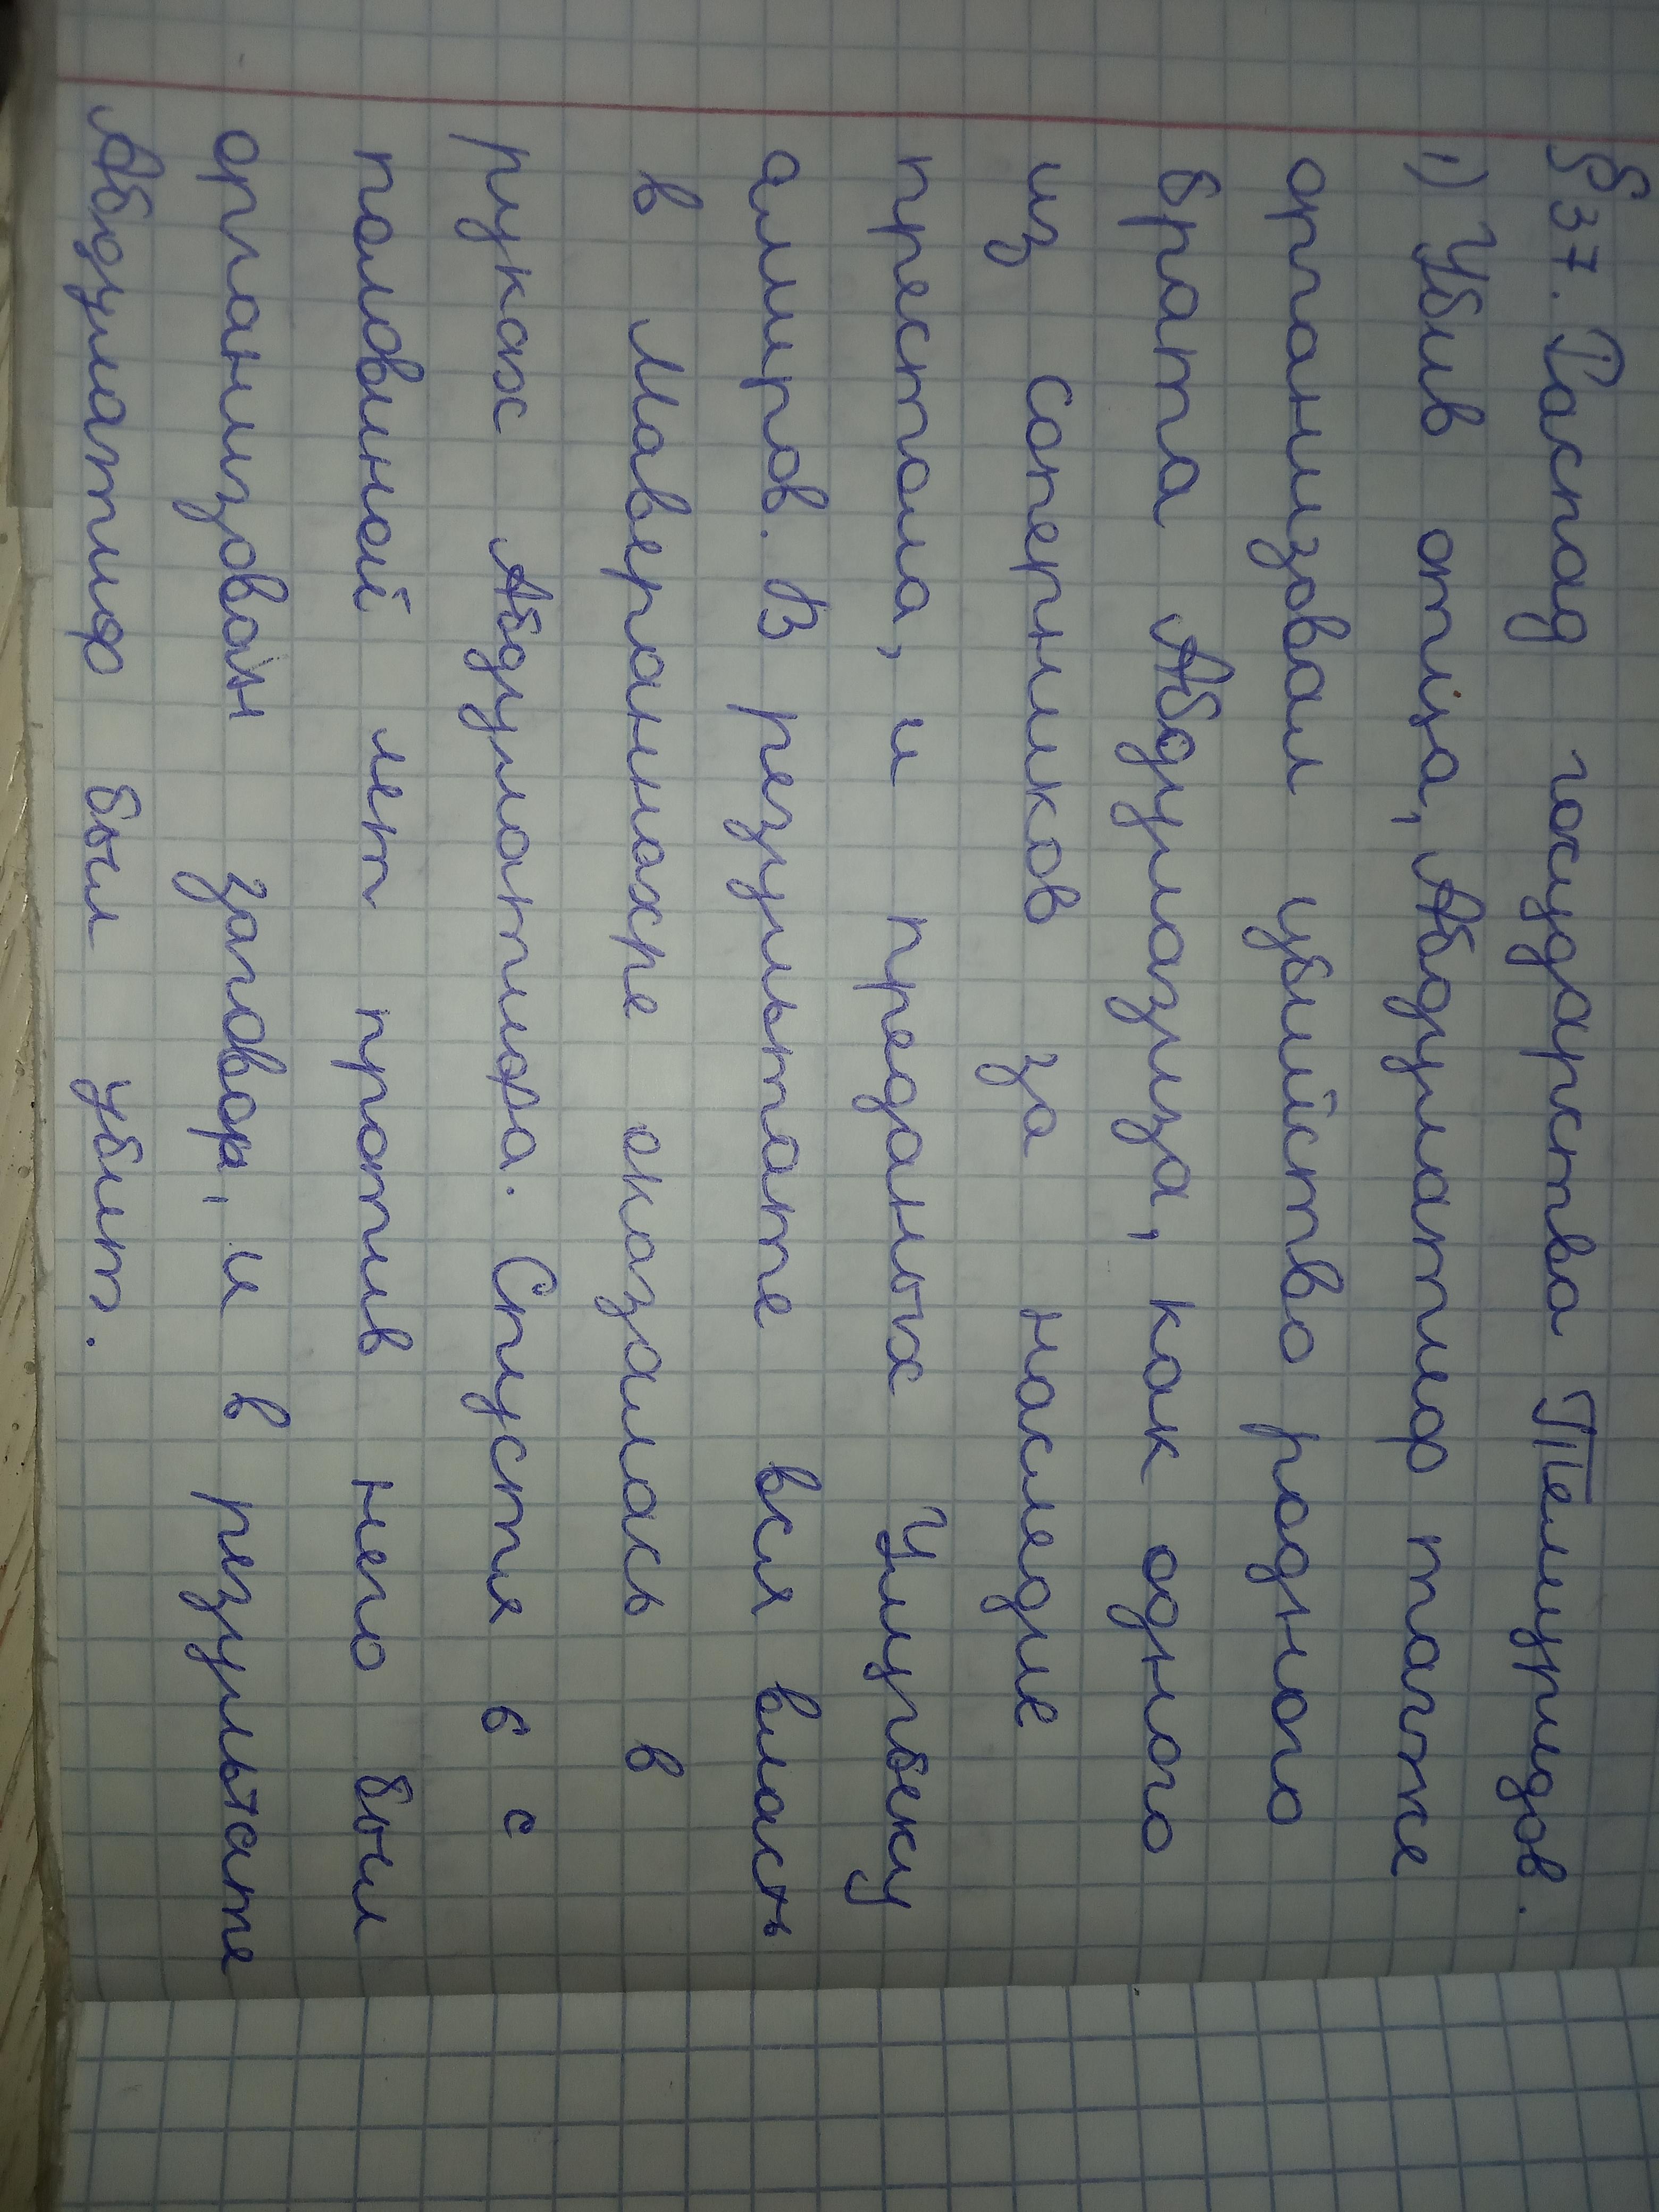 §37. Распад государства Темуридов.
1) Убив отца, Абдулатиф также
организовал убийство родного
брата Абдулазиза, как одного
из соперников за наследие
престола, и преданых Улугбеку
амиров. В результате вся власть
в Мавераннахре оказалась в
руках Абдулатифа. Спустя 6 с
половиной лет против него был
организован заговор, и в результате
Абдулатиф был убит.